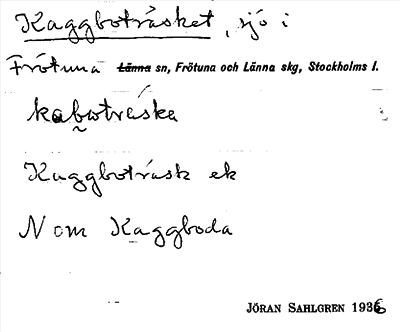 Kaggboträsket, sjö i
Frötuna Länna sn, Frötuna och Länna skg, Stockholms l.
kabωtráska
Kaggboträsk ek
N om Kaggboda
JÖRAN SAHLGREN 1936